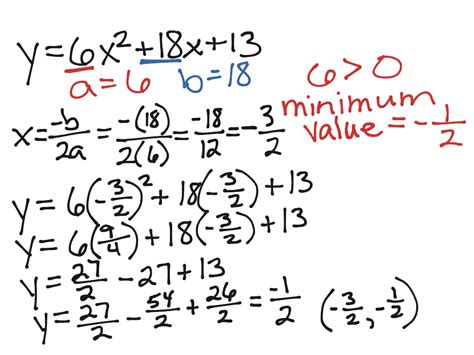 y=6x²+18x+13
a=6 b=18
6>0
minimum
value=-1/2
x=-b/2a=-(18)/2(6)=-18/12=-3/2
y=6(-3/2)²+18(-3/2)+13
y=6(9/4)+18(-3/2)+13
y=27/2-27+13
y=27/2-54/2+26/2=-1/2 (-3/2,-1/2)